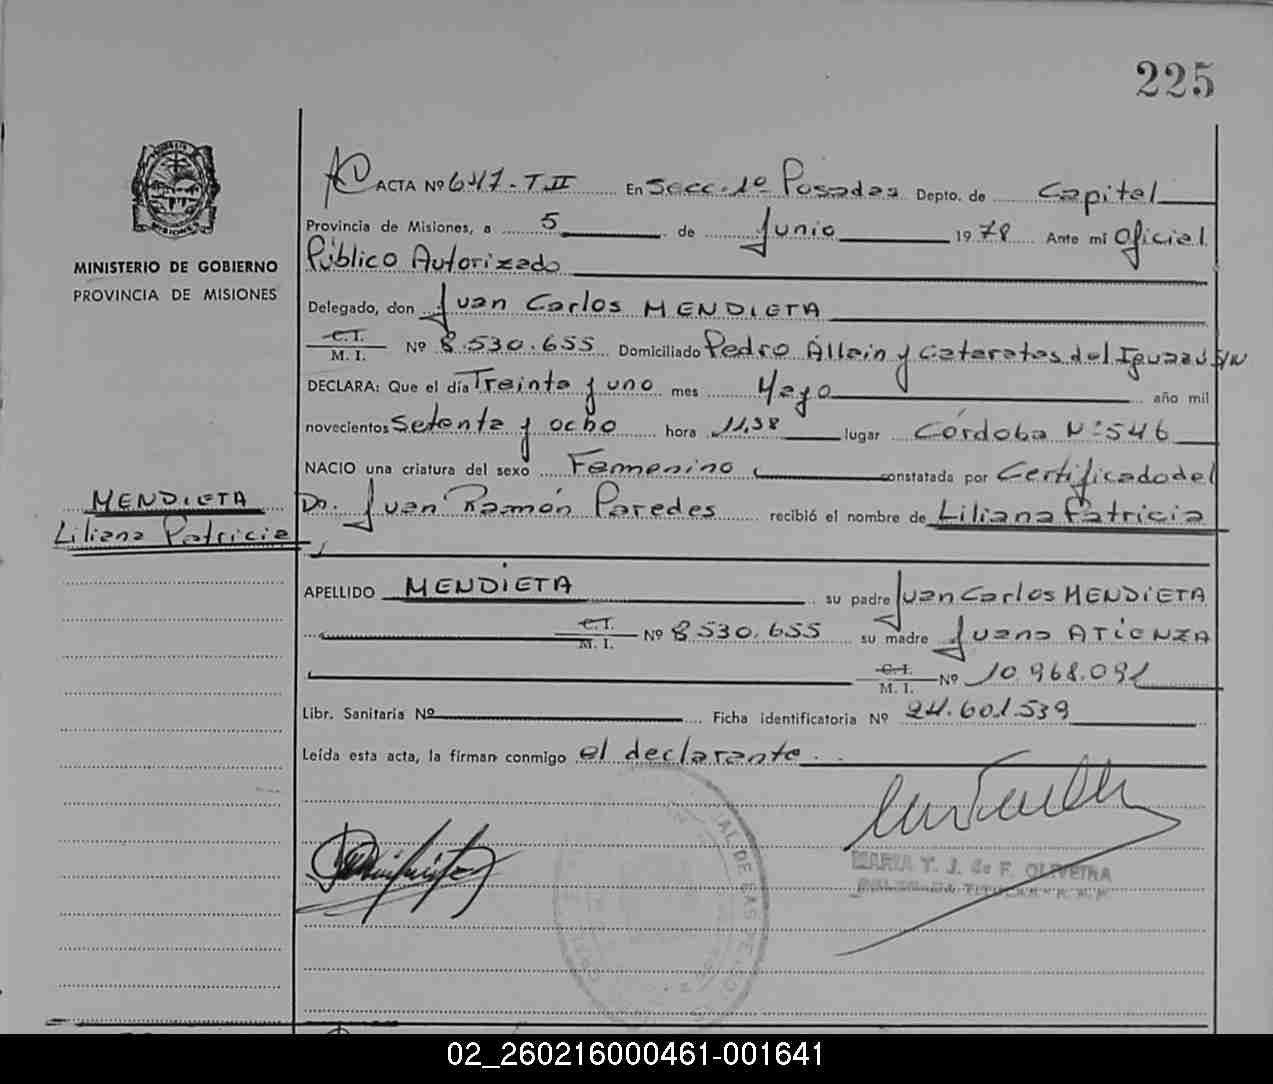 225
MINISTERIO DE GOBIERNO
PROVINCIA DE MISIONES
ACTA Nº 647-T.II En Secc. 1º Posadas Depto. de Capital
Provincia de Misiones, a 5 de Junio 1978 Ante mí Oficial
Público Autorizado
Delegado, don Juan Carlos MENDIETA
C.I.
M. I. Nº 8.530.655 Domiciliado Pedro Allain y Cataratas del Iguazú S/N
DECLARA: Que el día Treinta y uno mes Mayo año mil
novecientos Setenta y ocho hora 11,38 lugar Córdoba Nº 546
NACIO una criatura del sexo Femenino constatada por Certificado del
Dr. Juan Ramón Paredes recibió el nombre de Liliana Patricia
MENDIETA
Liliana Patricia
APELLIDO MENDIETA su padre Juan Carlos MENDIETA
C.I.
M. I. Nº 8.530.655 su madre Juana ATIENZA
C.I.
M. I. Nº 10.968.091
Libr. Sanitaria Nº Ficha identificatoria Nº 24.601.539
Leída esta acta, la firman conmigo el declarante.
MARIA T. J. de F. OLIVEIRA
02_260216000461-001641